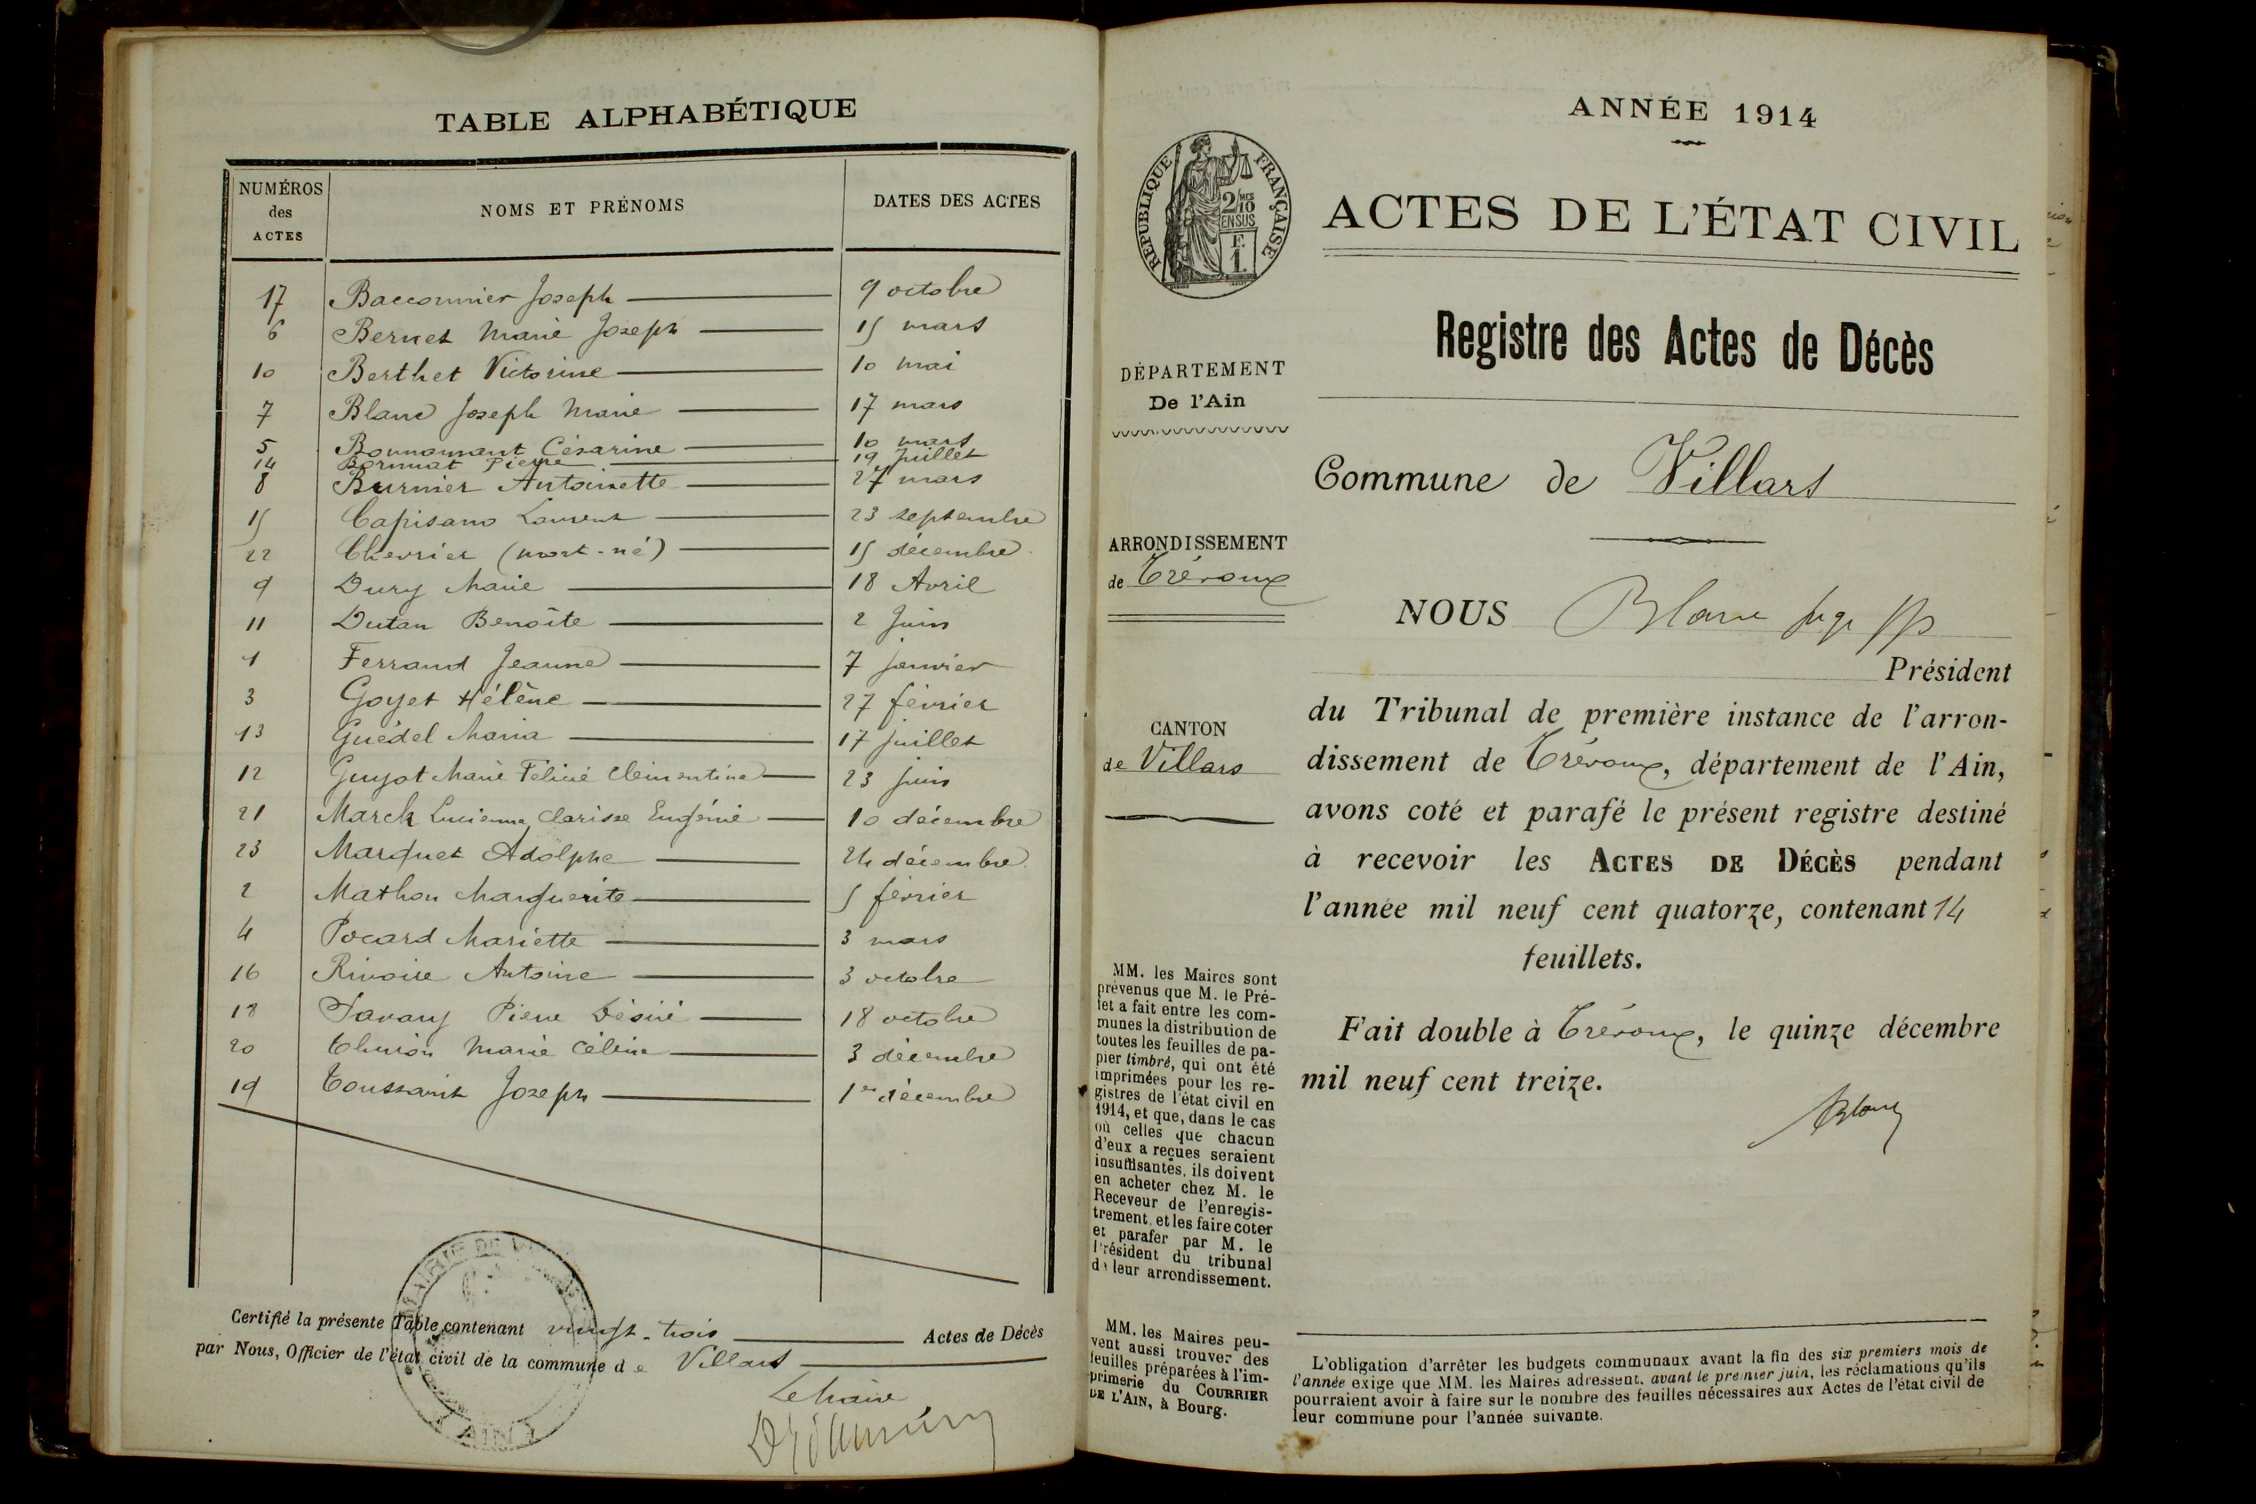 TABLE ALPHABÉTIQUE
NUMÉROS des ACTES NOMS ET PRÉNOMS DATES DES ACTES
17 Bacconnier Joseph 9 octobre
6 Bernet Marie Joseph 15 mars
10 Berthet Victorine 10 mai
7 Blanc Joseph Marie 17 mars
5 Bonnamant Césarine 10 mars
14 Bornuat Pierre 19 Juillet
8 Burnier Antoinette 27 mars
15 Capisano Laurent 23 septembre
22 Chevrier (mort-né) 15 décembre
9 Dury Marie 18 Avril
11 Dutan Benoîte 2 Juin
1 Ferrand Jeanne 7 janvier
3 Goyet Hélène 27 février
13 Guédel Maria 17 juillet
12 Guyot Marie Félicie Clémentine 23 juin
21 Marck Lucienne Clarisse Eugénie 10 décembre
23 Marquet Adolphe 24 décembre
2 Mathon Marguerite 5 février
4 Pocard Mariette 3 mars
16 Rivoire Antoine 3 octobre
18 Savary Pierre Désiré 18 octobre
20 Marie 3 décembre
19 Toussaint Joseph 1er décembre
Certifié la présente Table contenant vingt-trois Actes de Décès
par Nous, Officier de l'état civil de la commune de Villars
Le Maire
MAIRIE DE
AIN
ANNÉE 1914
RÉPUBLIQUE FRANÇAISE
2 MES
10
EN SUS
F.
1.
ACTES DE L'ÉTAT CIVIL
Registre des Actes de Décès
DÉPARTEMENT
De l'Ain
Commune de Villars
ARRONDISSEMENT
de Trévoux
CANTON
de Villars
NOUS Blanc juge
Président
du Tribunal de première instance de l'arron-
dissement de Trévoux, département de l'Ain,
avons coté et parafé le présent registre destiné
à recevoir les ACTES DE DÉCÈS pendant
l'année mil neuf cent quatorze, contenant 14
feuillets.
Fait double à Trévoux, le quinze décembre
mil neuf cent treize.
Blanc
MM. les Maires sont
prévenus que M. le Pré-
fet a fait entre les com-
munes la distribution de
toutes les feuilles de pa-
pier timbré, qui ont été
imprimées pour les re-
gistres de l'état civil en
1914, et que, dans le cas
où celles que chacun
d'eux a reçues seraient
insuffisantes, ils doivent
en acheter chez M. le
Receveur de l'enregis-
trement, et les faire coter
et parafer par M. le
Président du tribunal
de leur arrondissement.
MM. les Maires peu-
vent aussi trouver des
feuilles préparées à l'im-
primerie du COURRIER
DE L'AIN, à Bourg.
L'obligation d'arrêter les budgets communaux avant la fin des six premiers mois de
l'année exige que MM. les Maires adressent, avant le premier juin, les réclamations qu'ils
pourraient avoir à faire sur le nombre des feuilles nécessaires aux Actes de l'état civil de
leur commune pour l'année suivante.